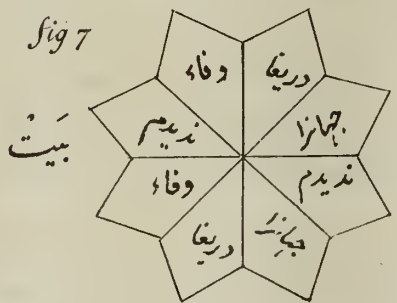 fig 7
بَيْتْ
وفاء
دريغا
جهانرا
نديدم
جهانرا
دريغا
وفاء
نديدم